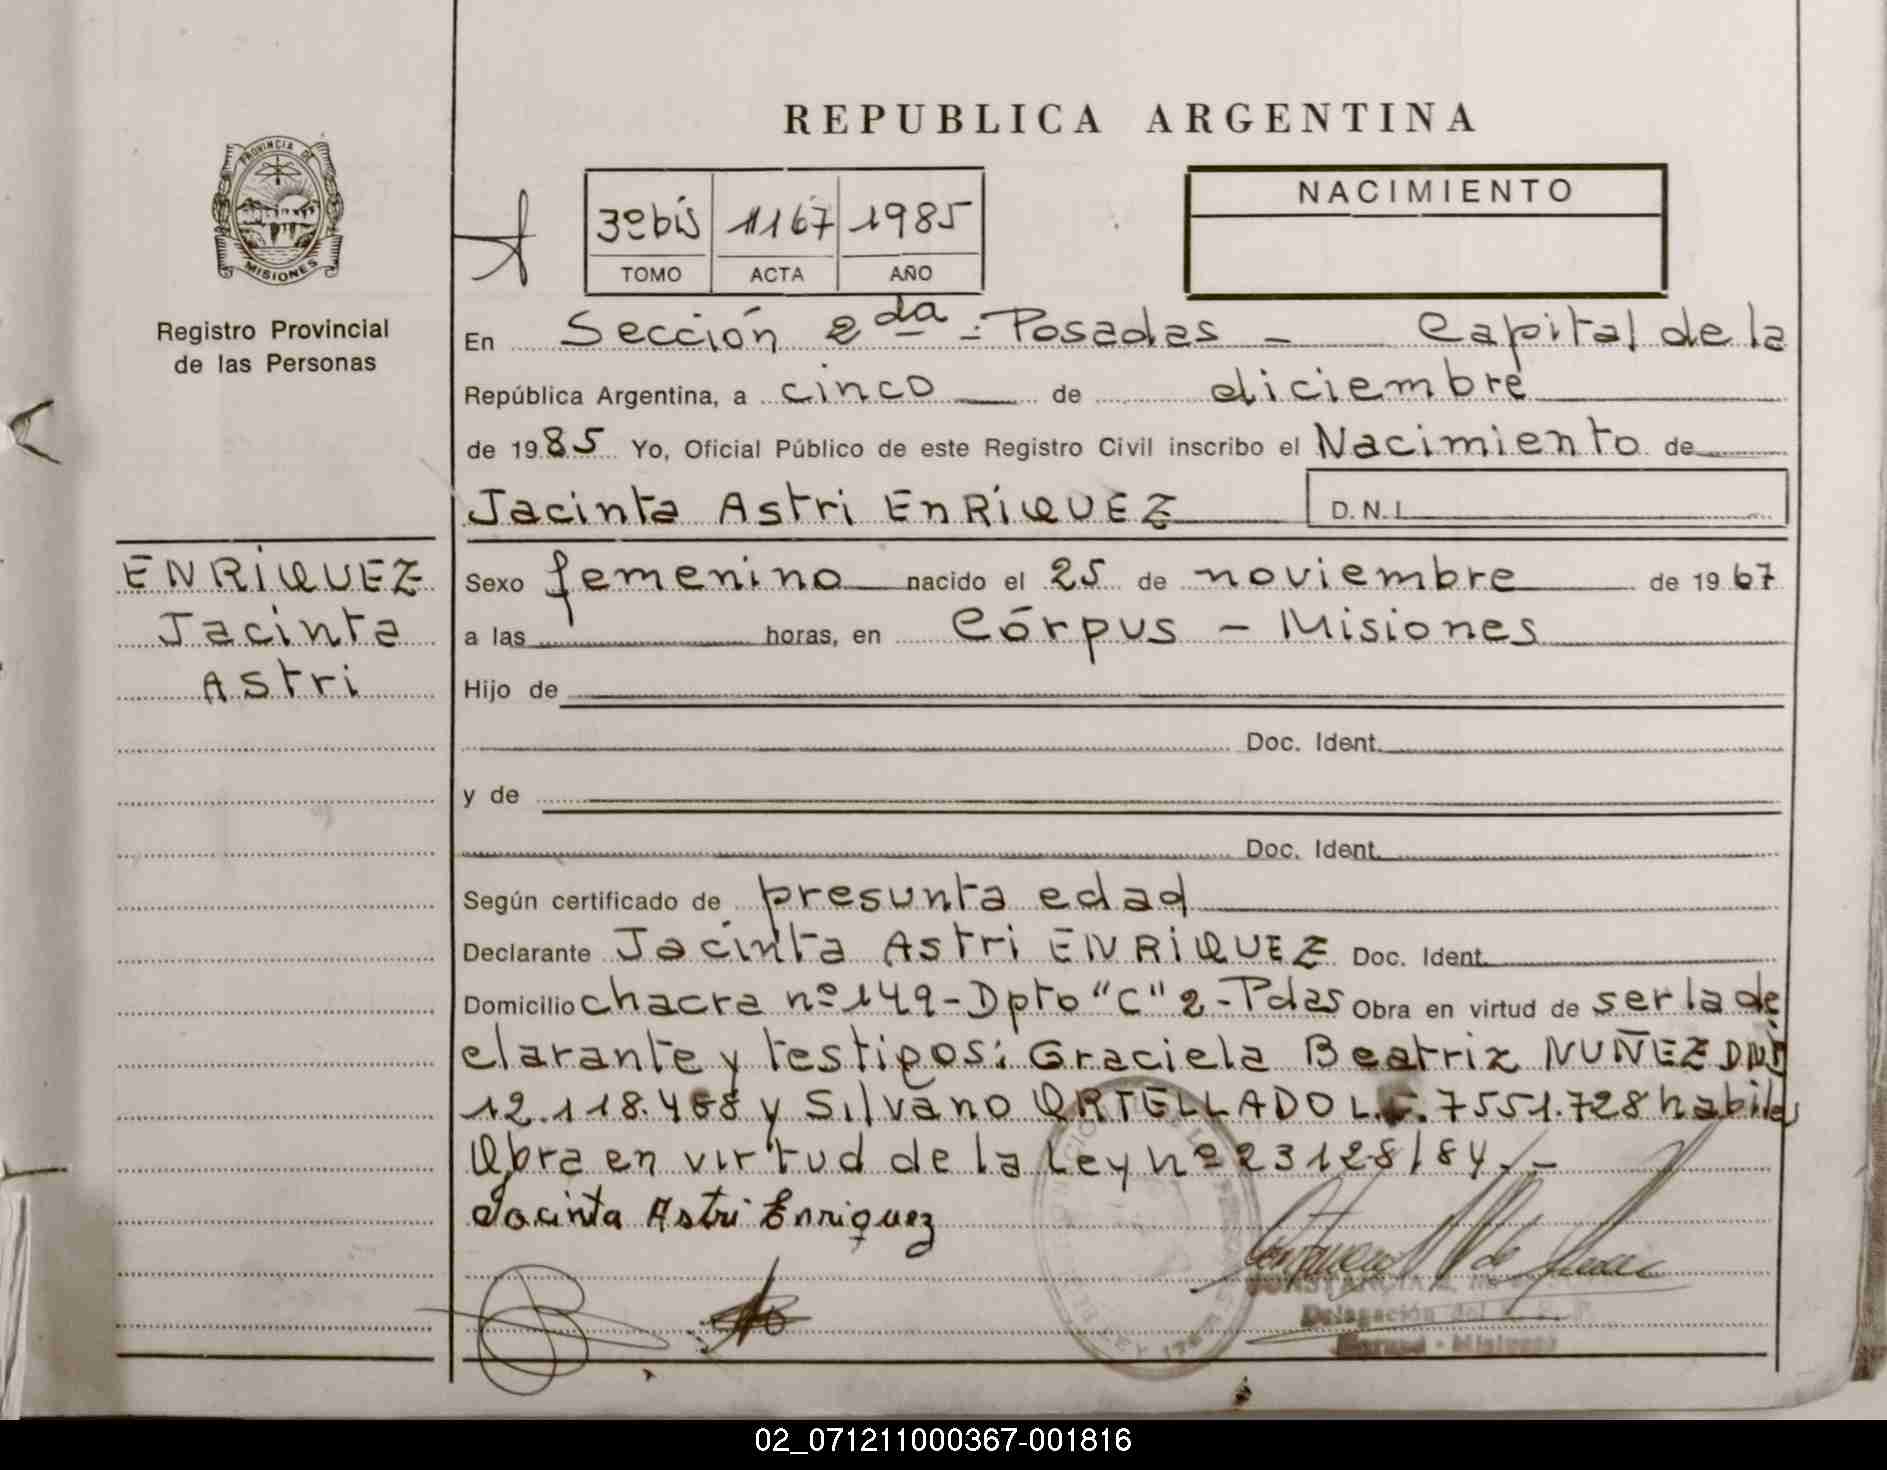 REPUBLICA ARGENTINA
PROVINCIA DE
MISIONES
Registro Provincial
de las Personas
3º bis 1167 1985
TOMO ACTA AÑO
NACIMIENTO
En Sección 2da - Posadas - Capital de la
República Argentina, a cinco de diciembre
de 1985 Yo, Oficial Público de este Registro Civil inscribo el Nacimiento de
Jacinta Astri ENRIQUEZ D.N.I.
ENRIQUEZ
Jacinta
Astri
Sexo femenino nacido el 25 de noviembre de 1967
a las horas, en Córpus - Misiones
Hijo de
Doc. Ident.
y de
Doc. Ident.
Según certificado de presunta edad
Declarante Jacinta Astri ENRIQUEZ Doc. Ident.
Domicilio chacra nº 149 - Dpto "C" 2 - Pdas Obra en virtud de ser la de
clarante y testigos: Graciela Beatriz NUÑEZ DNI
12.118.468 y Silvano ORTELLADO L.E. 7551.728 habiles
Obra en virtud de la Ley nº 23128/84.-
Jacinta Astri Enriquez
Delegación del
02_071211000367-001816